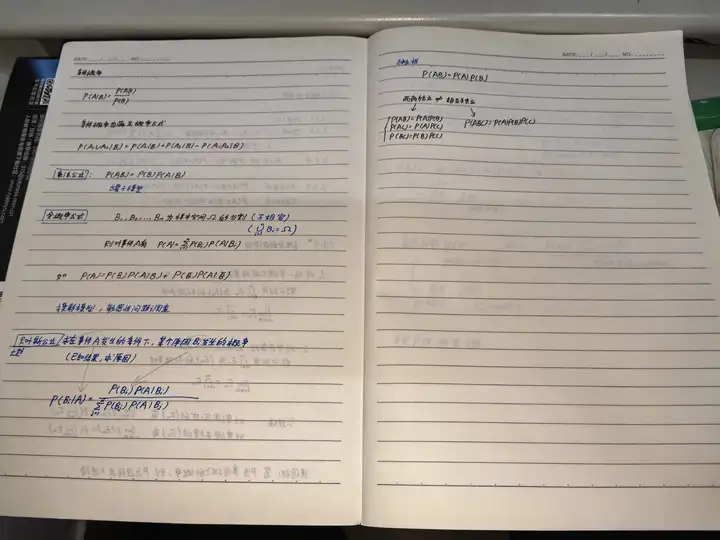 DATE: NO:
条件概率
P(A|B) = P(AB) / P(B)
条件概率的加法公式
P(A₁∪A₂|B) = P(A₁|B) + P(A₂|B) - P(A₁A₂|B)
乘法公式: P(AB) = P(B)P(A|B)
模型
全概率公式 B₁, B₂, ... Bn 为样本空间Ω的分割 (不相容)
(⋃ Bi = Ω)
则对事件A有 P(A) = Σ P(Bi) P(A|Bi)
如 P(A) = P(B)P(A|B) + P(B̄)P(A|B̄)
摸彩模型, 敏感性问题调查
贝叶斯公式 求在事件A发生的条件下, 某个原因Bi发生的概率
(已知结果, 求原因)
P(Bi|A) = P(Bi)P(A|Bi) / Σ P(Bj)P(A|Bj)
DATE: NO:
独立性
P(AB) = P(A)P(B)
两两独立 ≠ 相互独立
P(AB) = P(A)P(B) P(ABC) = P(A)P(B)P(C)
P(AC) = P(A)P(C)
P(BC) = P(B)P(C)